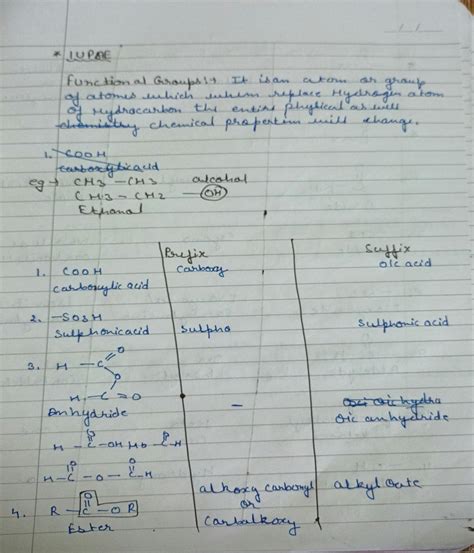 * IUPAE
Functional Groups:→ It is an atom or group
of atomes which when replace Hydrogen atom
of Hydrocarbon the entire physical as will
chemistry chemical propertion will change.
1. COOH
carboxylic acid
eg → CH3 — CH3 alcohal
CH3 — CH2 — OH
Ethanal
Prefix Suffix
1. COOH carboxy oic acid
carboxylic acid
2. —SO3H
sulphonic acid sulpho sulphonic acid
3. H — C = O
O
H — C = O
Anhydride — oic anhydride
H — C — OH HO — C — H
O O
H — C — O — C — H
O O
4. R — C — O R alkoxy carbonyl alkyl oate
O or
Ester Carbalkoxy